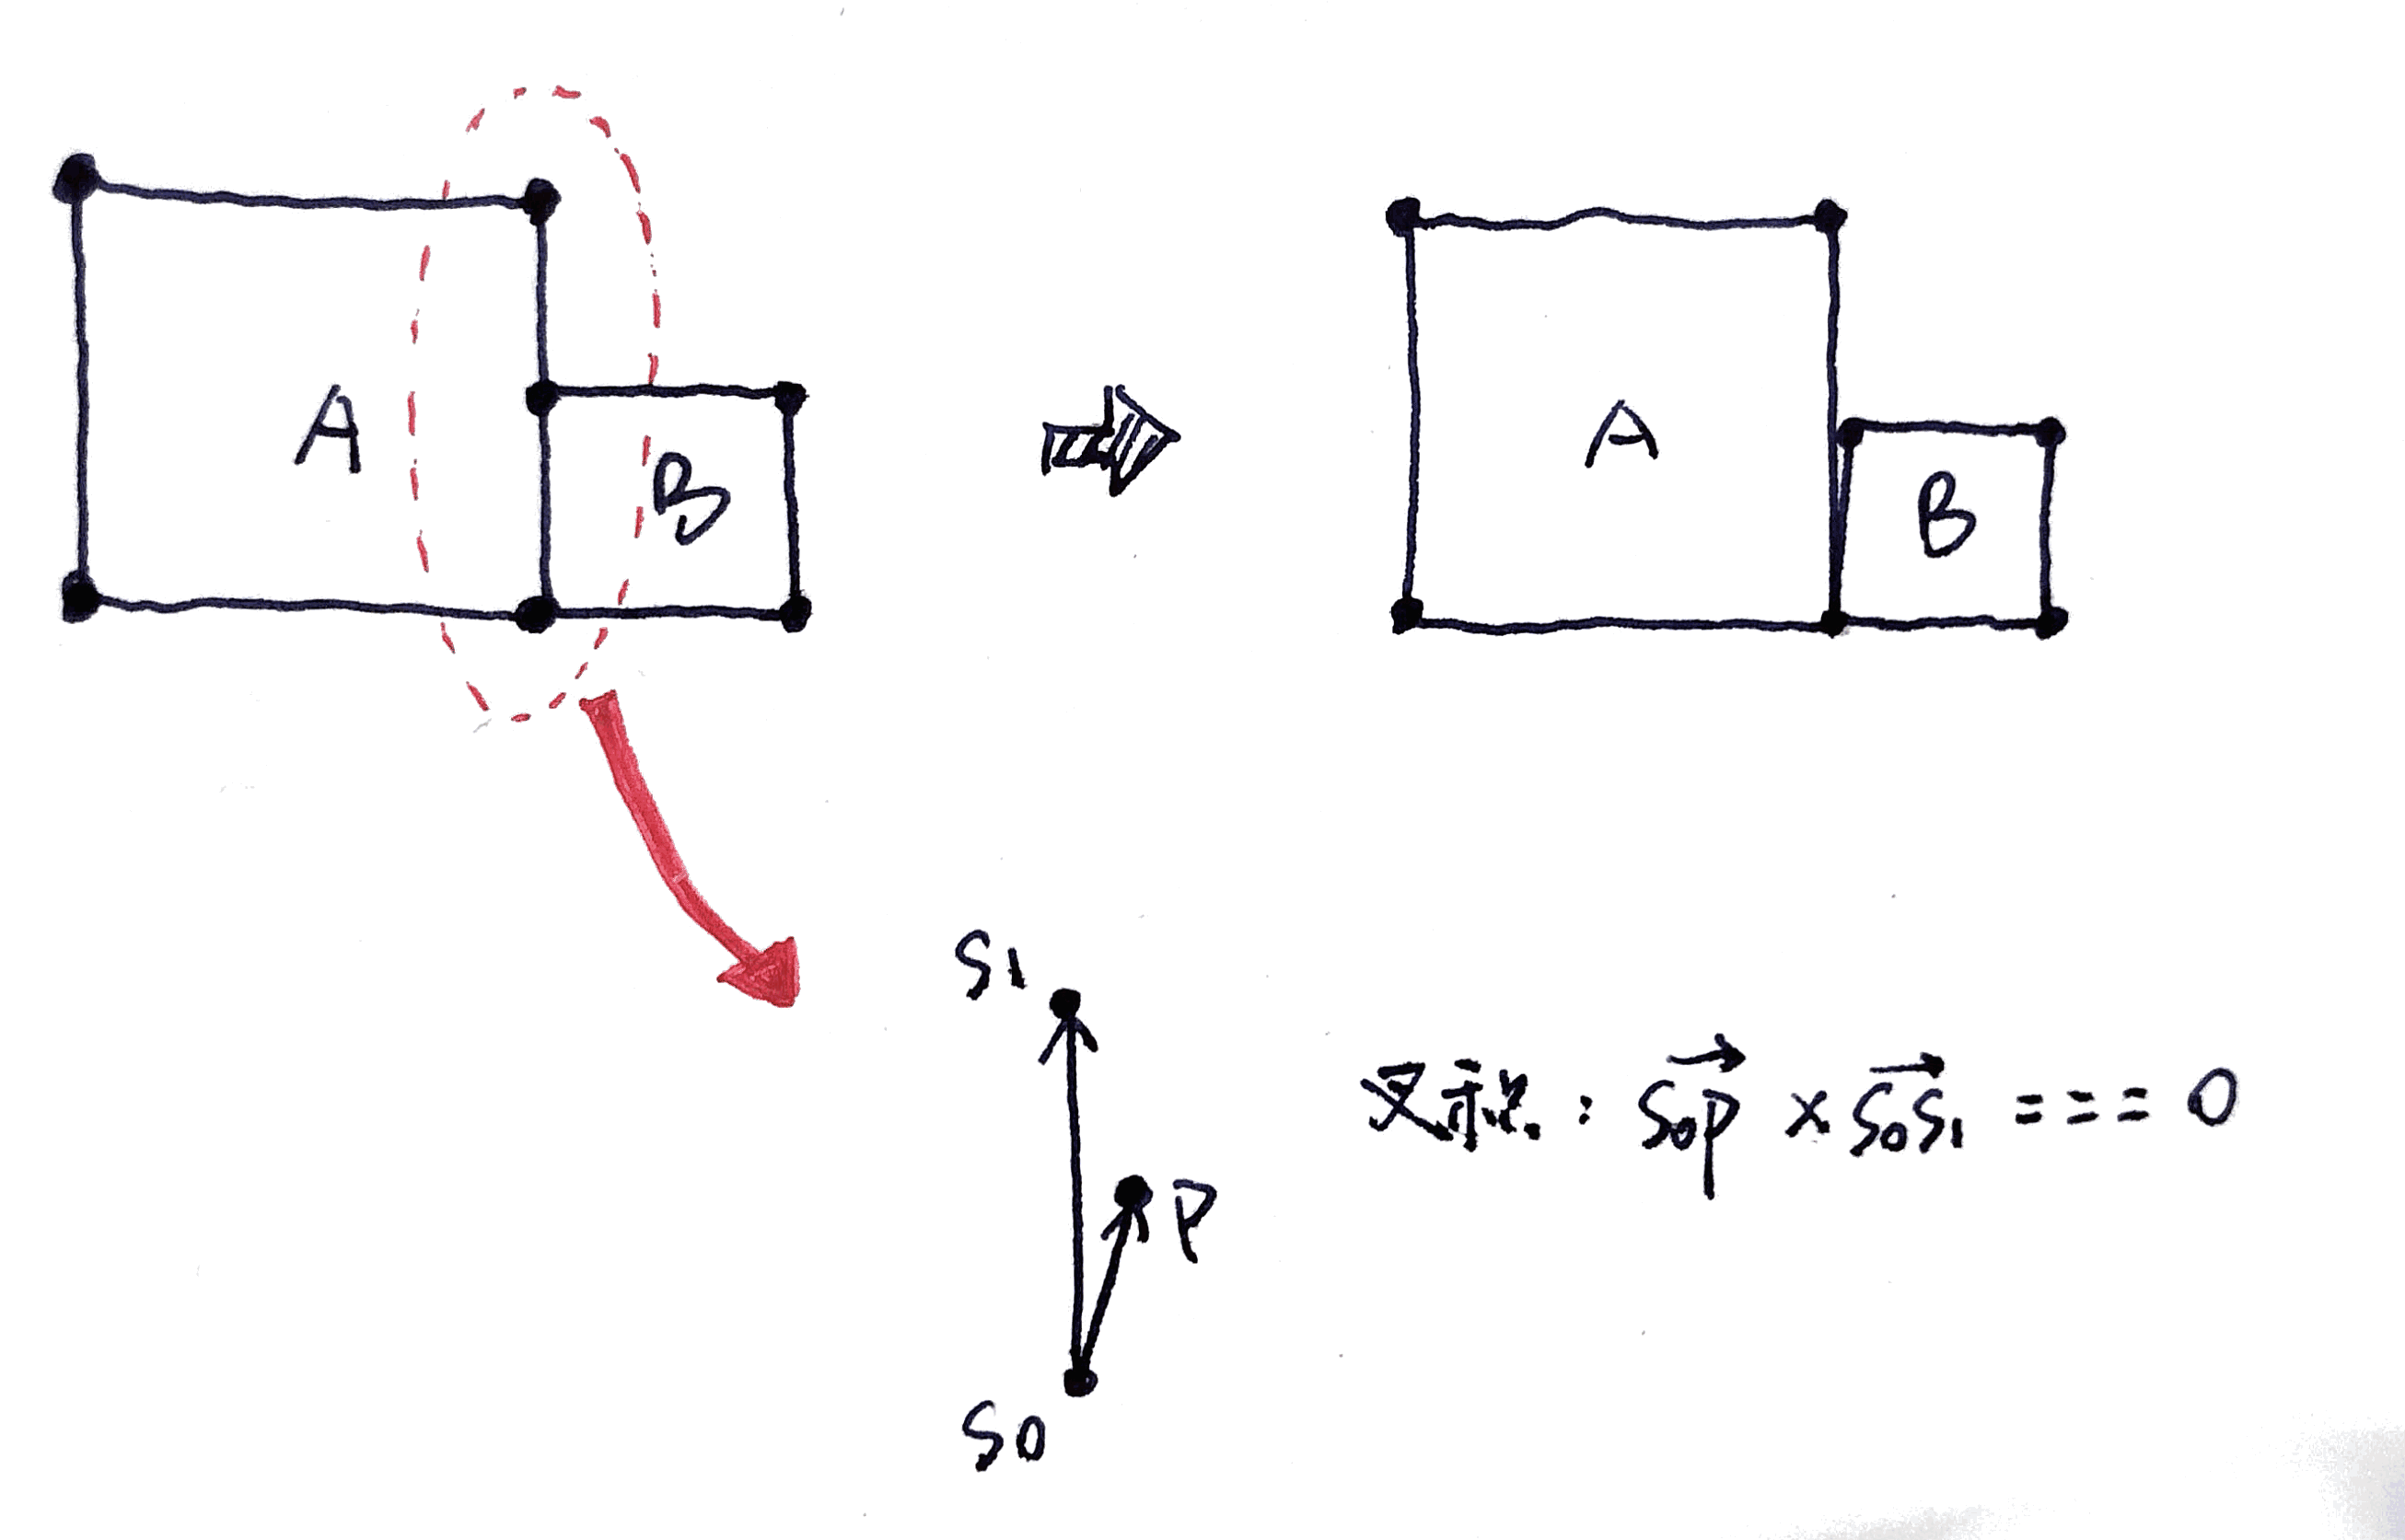 A
B
A
B
S1
P
S0
叉积: S0P × S0S1 === 0